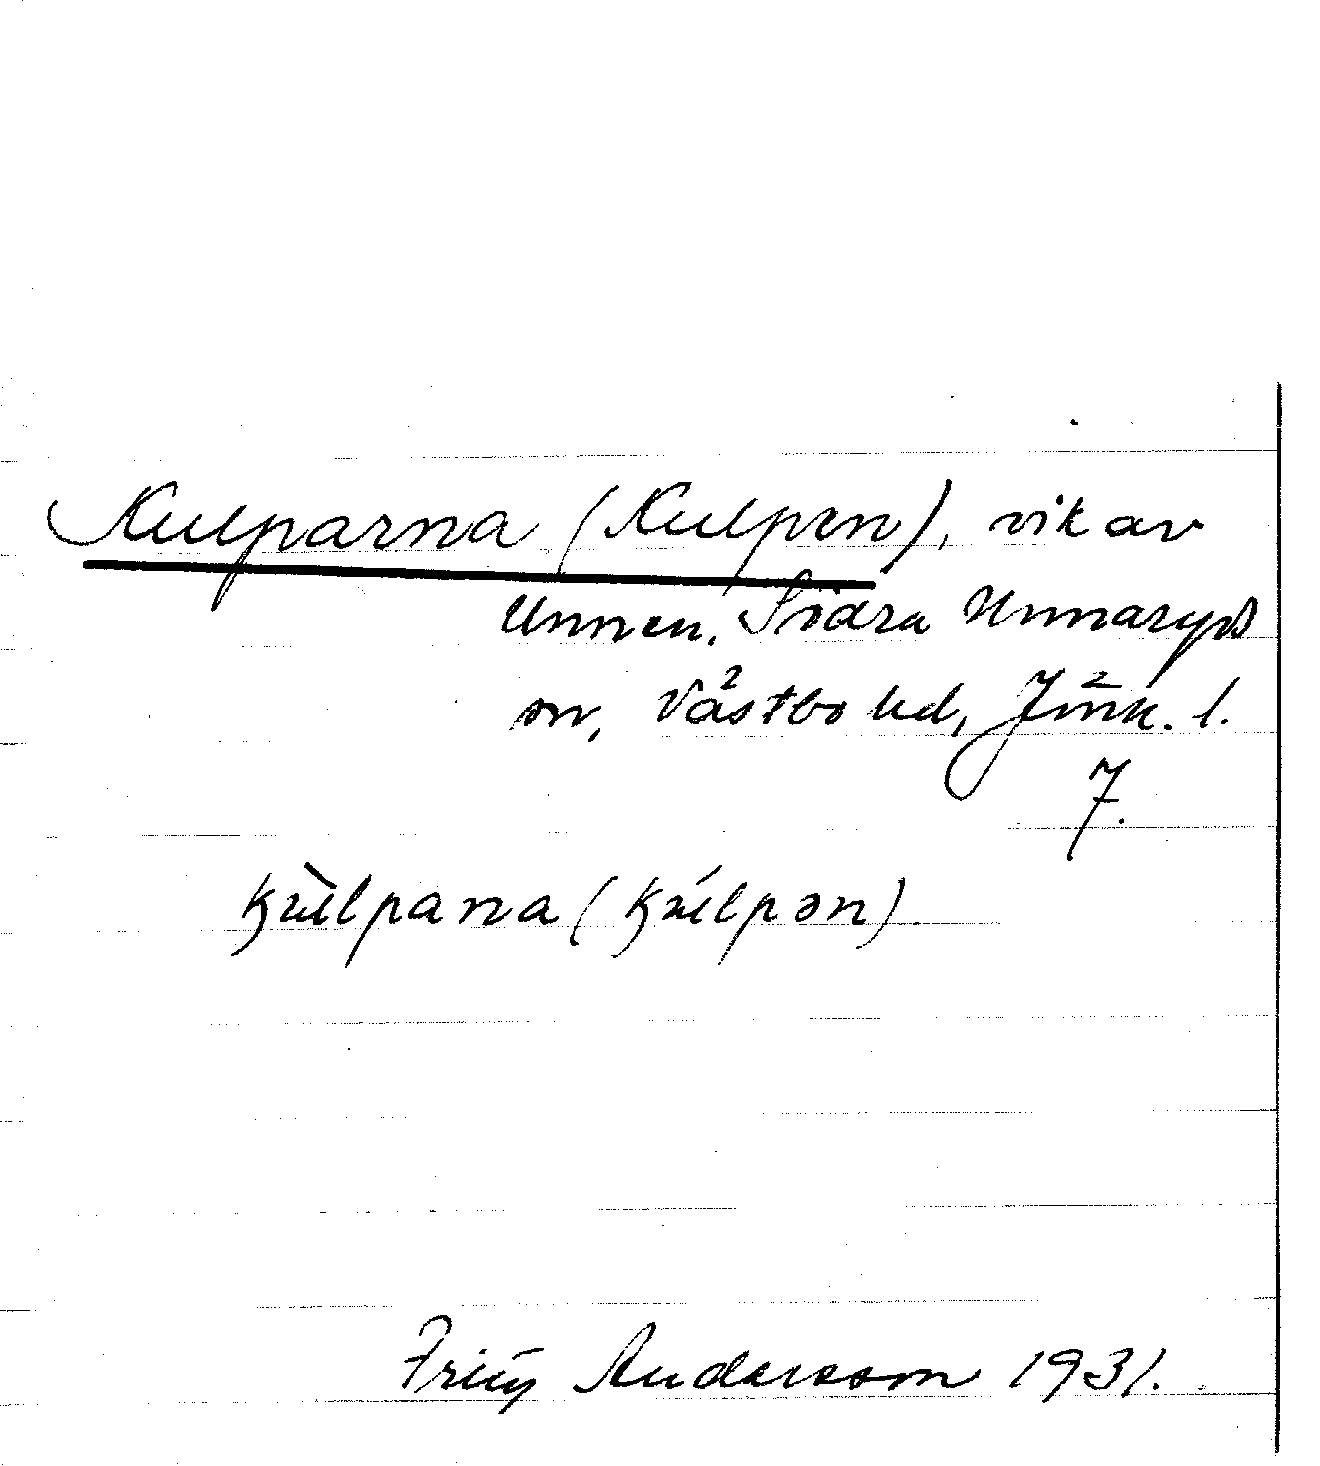 Kulparna (Kulpen), vik av
Unnen, Södra Unnaryds
sn, Västbo hd, Jönk. l.
7.
kùlpana (kúlpən)
Fritz Andersson 1931.